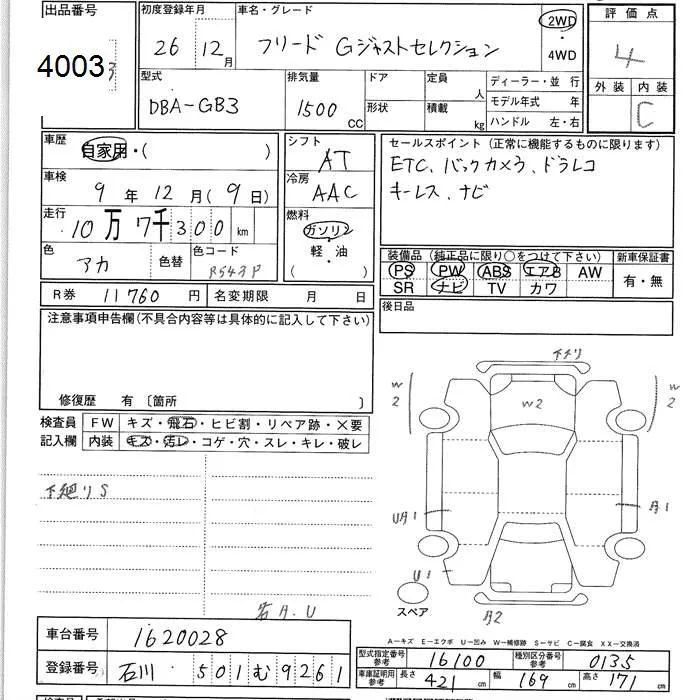 出品番号 4003
初度登録年月 26 12月
車名・グレード フリード Gジャストセレクション
2WD・4WD
評価点 4
外装 内装 C
型式 DBA-GB3
排気量 1500 CC
ドア 形状
定員 人 積載 kg
ディーラー・並行
モデル年式 年
ハンドル 左・右
車歴 自家用・( )
車検 9年12月(9日)
走行 10万7千300km
色 アカ 色替 色コード R543P
シフト AT
冷房 AAC
燃料 ガソリン
軽・油
( )
セールスポイント(正常に機能するものに限ります)
ETC、バックカメラ、ドラレコ
キーレス、ナビ
装備品(純正品に限り○をつけて下さい) 新車保証書
PS PW ABS エアB AW 有・無
SR ナビ TV カワ
R券 11760円 名変期限 月 日
後日品
注意事項申告欄(不具合内容等は具体的に記入して下さい)
修復歴 有〔箇所 〕
検査員 FW キズ・飛石・ヒビ割・リペア跡・×要
記入欄 内装 キズ・汚レ・コゲ・穴・スレ・キレ・破レ
下廻りS
下キリ
W2 W2 W2
UA1 A1
U1
スペア
A2
A-キズ E-エクボ U-凹み W-補修跡 S-サビ C-腐食 XX-交換済
車台番号 1620028
登録番号 石川 501む9261
型式指定番号 参考 16100 種別区分番号 参考 0135
車庫証明用 参考 長さ 421cm 幅 169cm 高さ 171cm